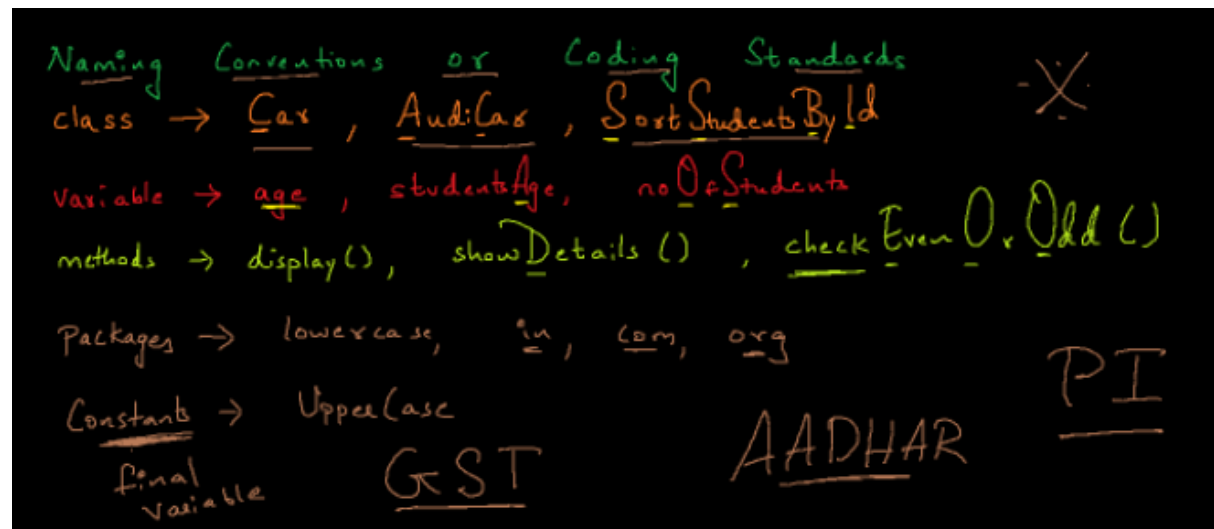 Naming Conventions or Coding Standards
class → Car , AudiCar , SortStudentsById
X
variable → age , studentsAge, noOfStudents
methods → display(), showDetails() , checkEvenOrOdd()
Packages → lowercase, in, com, org
PI
Constants → UpperCase
final variable
GST
AADHAR